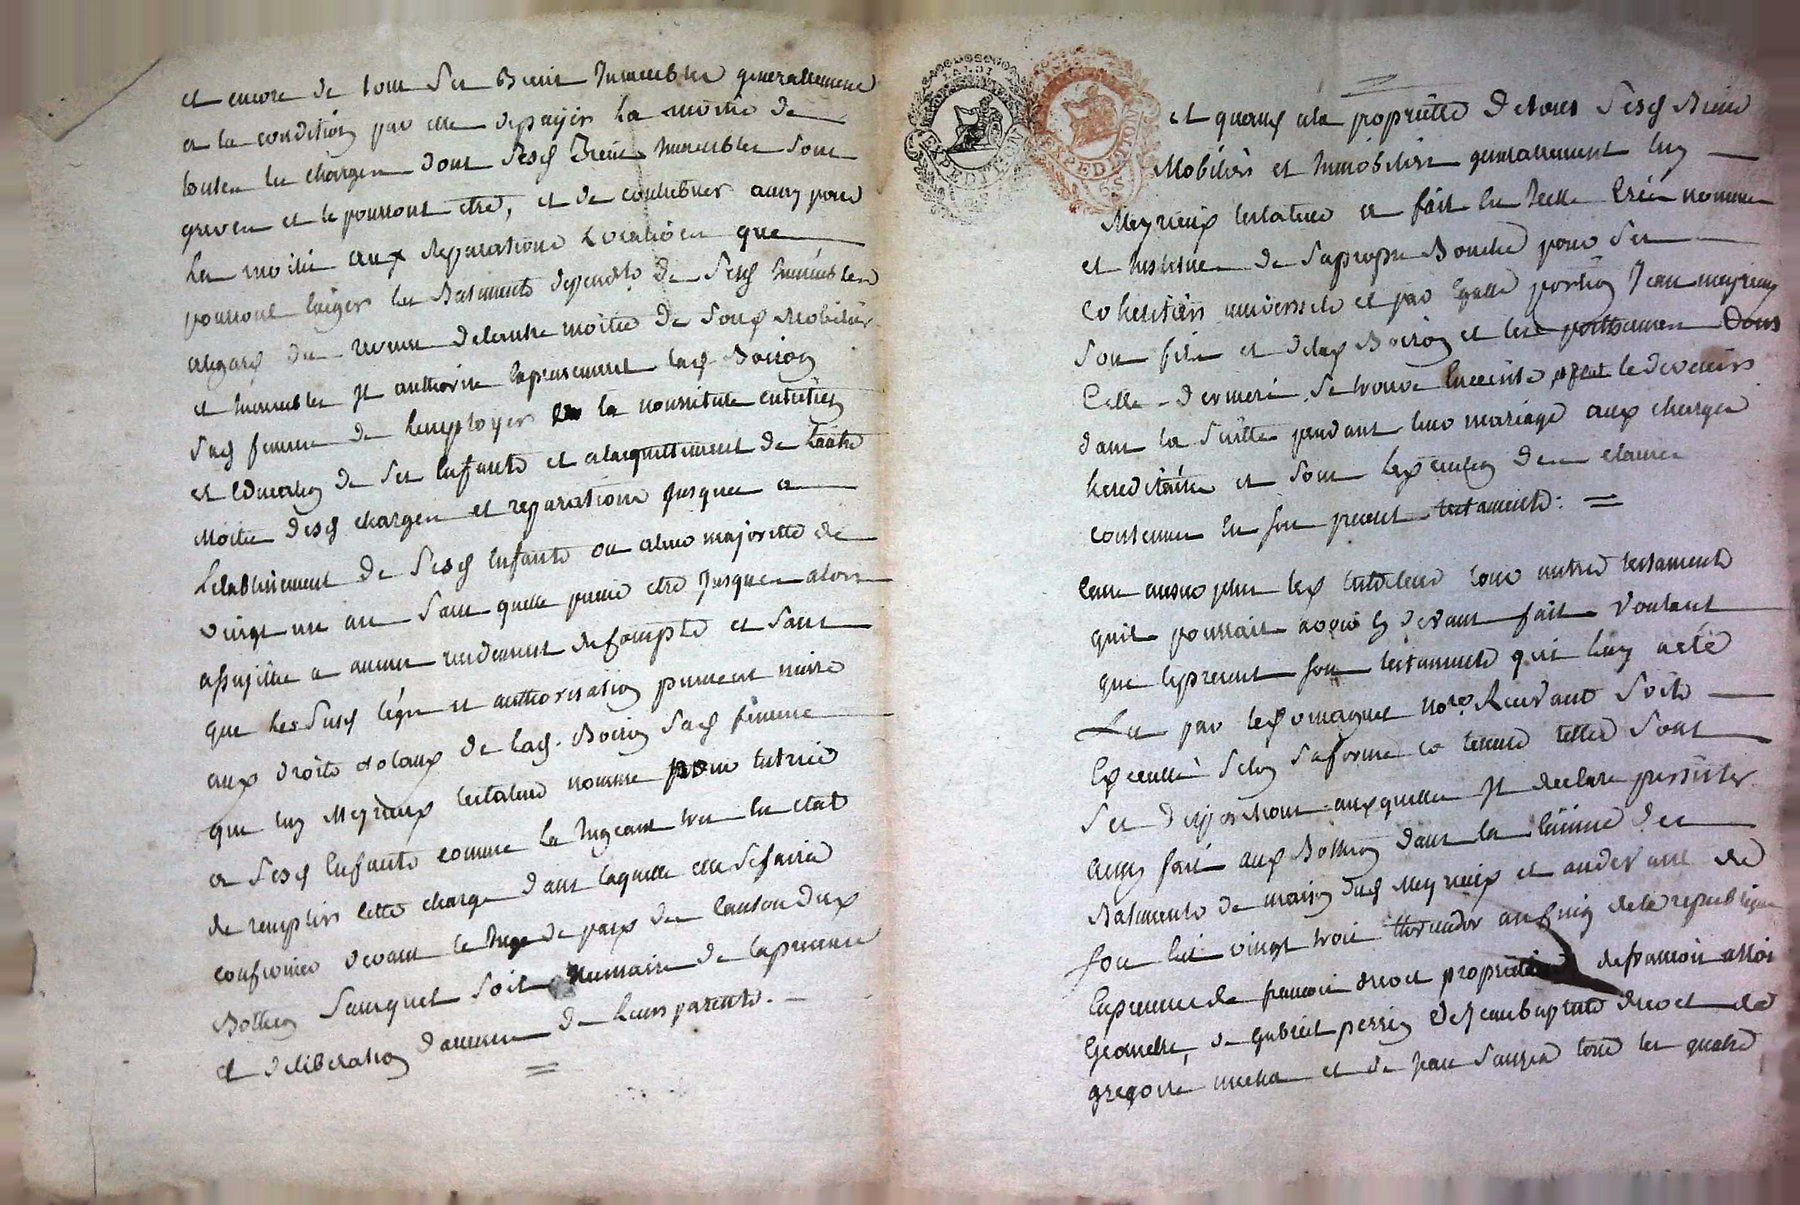 et encore de tous ses Biens Immeubles generallement
a la condition par elle depayer La moitié de
toutes les charges dont sesd Biens Immeubles sont
greves et le pourront etre, et de contribuer aussy pour
La moitié aux Reparations Locatives que
pourront exiger les Batiments dependts de sesd Immeubles
alegard du revenu delautre moitié de sesd Mobiliers
et Immeubles Il authorise lapresement lad Boiron
sad femme de lemployer a la nourriture entretien
et education de ses Enfants et alacquittement de lautre
Moitié desd charges et reparations Jusques a
Letablissement de sesd Enfants ou aleur majoritté de
vingt un an sans quelle puisse etre Jusques alors
assujettie a aucun rendement de Compte et sans
que Les susd legs et authorisation puissent nuire
aux droits dotaux de lad. Boiron sad femme
que luy Meyrieux testateur nomme pour tutrice
a sesd Enfants comme la Jugeant tres en etat
de remplir cette charge dans laquelle elle se faira
confirmer devant le Juge de paix du Canton dud
Bothéon sauquel soit Nécessaire de lapresence
et deliberation d'aucuns de Leurs parents. —
EXPEDITION
et quant ala propriette de tous sesd Biens
Mobiliers et Immobiliers generallement luy
Meyrieux testateur a fait en Icelle Créé nommé
et Institué de sapropre Bouche pour ses
Coheritiers universels et par Egalle portion Jean meyrieux
son fils et delad Boiron et les posthumes Dont
Celle dernière se trouve Enceinte et le devenir
dans la suitte pendant leur mariage aux charges
hereditaires et sous lexecution des clauses
contenues En son present testament: =
Cassant revoquant led testateur tous autres testaments
quil pourroit avoir cy devant fait Voulant
que lepresent son testament qui luy a eté
Lu par led Jourgnet notre Recevant soit
Executté selon saforme et teneur telles sont
ses dispositions auxquelles Il declare persister
ainsy fait aud Bothéon dans la Cuisine des
Batiments de maison dud Meyrieux et audevant de
son lit vingt trois thermidor an Cinq de la republique
Enpresence de francois drevet proprietaire de francois
de gabriel perrin de Jean baptiste drevet de
gregoire et de Jean tous les quatre